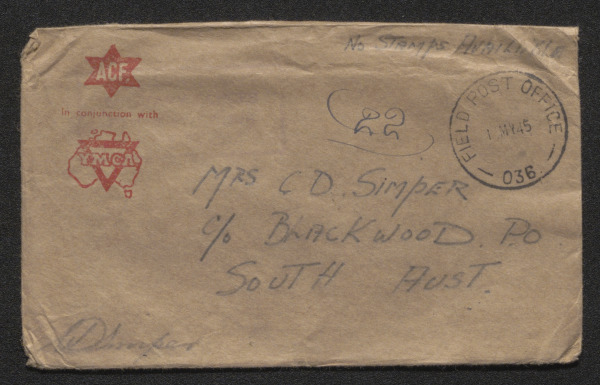 No STAMPS AVAILABLE
ACF.
In conjunction with
YMCA
22
FIELD POST OFFICE
1 MY 45
036
MRS C D. SIMPER
C/o BLACKWOOD P.O
SOUTH AUST.
CDSimper